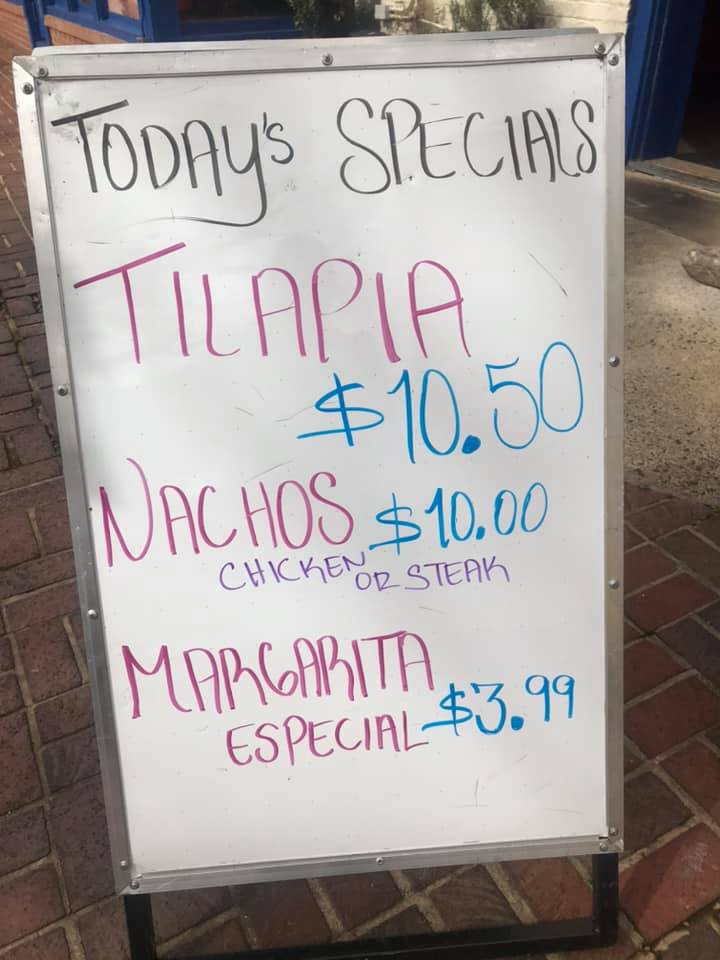 TODAY'S SPECIALS
TILAPIA
$10.50
NACHOS $10.00
CHICKEN OR STEAK
MARGARITA
ESPECIAL $3.99